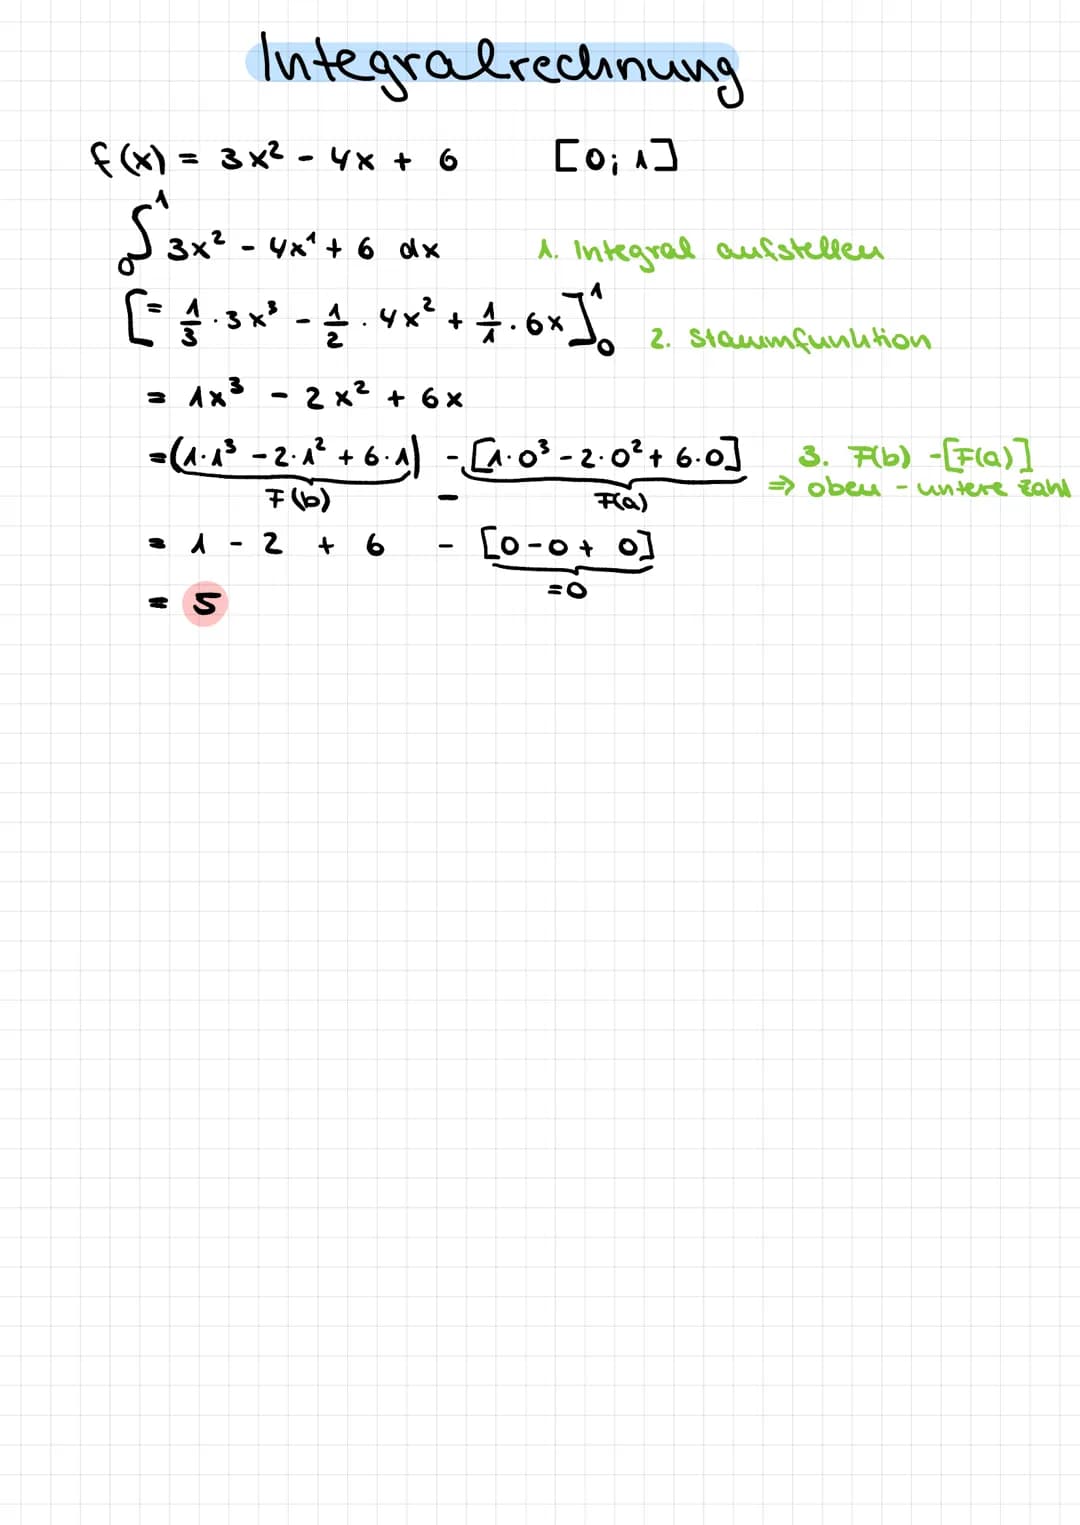 Integralrechnung
f(x) = 3x² - 4x + 6 [0; 1]
∫₀¹ 3x² - 4x¹ + 6 dx 1. Integral aufstellen
[= 1/3 · 3x³ - 1/2 · 4x² + 1/1 · 6x]₀¹ 2. Stammfunktion
= 1x³ - 2x² + 6x
=(1·1³ - 2·1² + 6·1) - [1·0³ - 2·0² + 6·0] 3. F(b) -[F(a)]
F(b) - F(a) ⇒ oben - untere Zahl
= 1 - 2 + 6 - [0 - 0 + 0]
=0
= 5